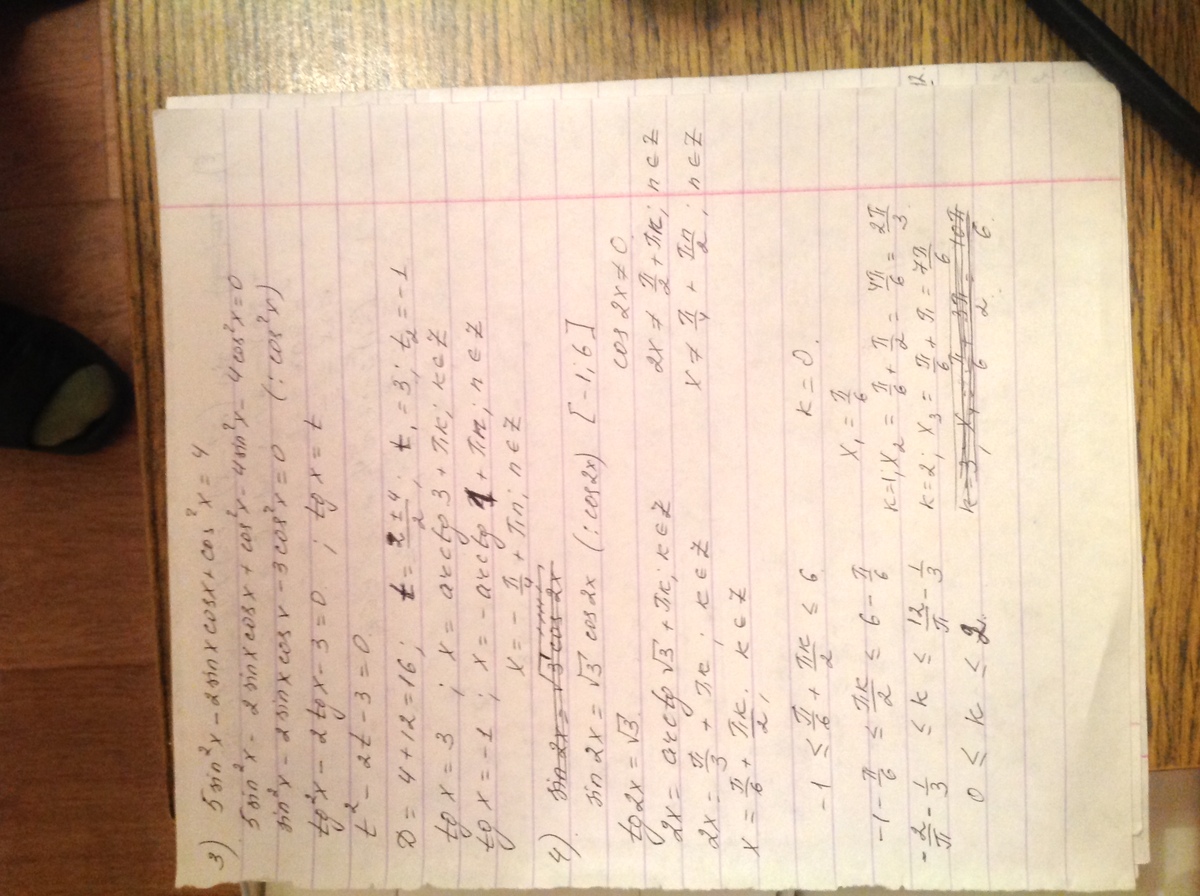 3) 5sin²x - 2sinxcosx + cos²x = 4
5sin²x - 2sinxcosx + cos²x - 4sin²x - 4cos²x = 0
sin²x - 2sinxcosx - 3cos²x = 0 (: cos²x)
tg²x - 2tgx - 3 = 0 ; tgx = t
t² - 2t - 3 = 0
D = 4 + 12 = 16; t = (2 ± 4)/2; t₁ = 3; t₂ = -1
tgx = 3 ; x = arctg3 + πk; k∈Z
tgx = -1 ; x = -arctg1 + πn; n∈Z
x = -π/4 + πn; n∈Z
4) sin2x = √3cos2x
sin2x = √3cos2x (: cos2x) [-1; 6]
tg2x = √3 cos2x ≠ 0
2x = arctg√3 + πk; k∈Z 2x ≠ π/2 + πn; n∈Z
2x = π/3 + πk ; k∈Z x ≠ π/4 + πn/2 ; n∈Z
x = π/6 + πk/2, k∈Z
-1 ≤ π/6 + πk/2 ≤ 6 k = 0.
x₁ = π/6
-1 - π/6 ≤ πk/2 ≤ 6 - π/6 k=1; x₂ = π/6 + π/2 = 4π/6 = 2π/3
-2/π - 1/3 ≤ k ≤ 12/π - 1/3 k=2; x₃ = π/6 + π = 7π/6
0 ≤ k ≤ 2. k=3 x₄ = π/6 + 3π/2 = 10π/6
12.